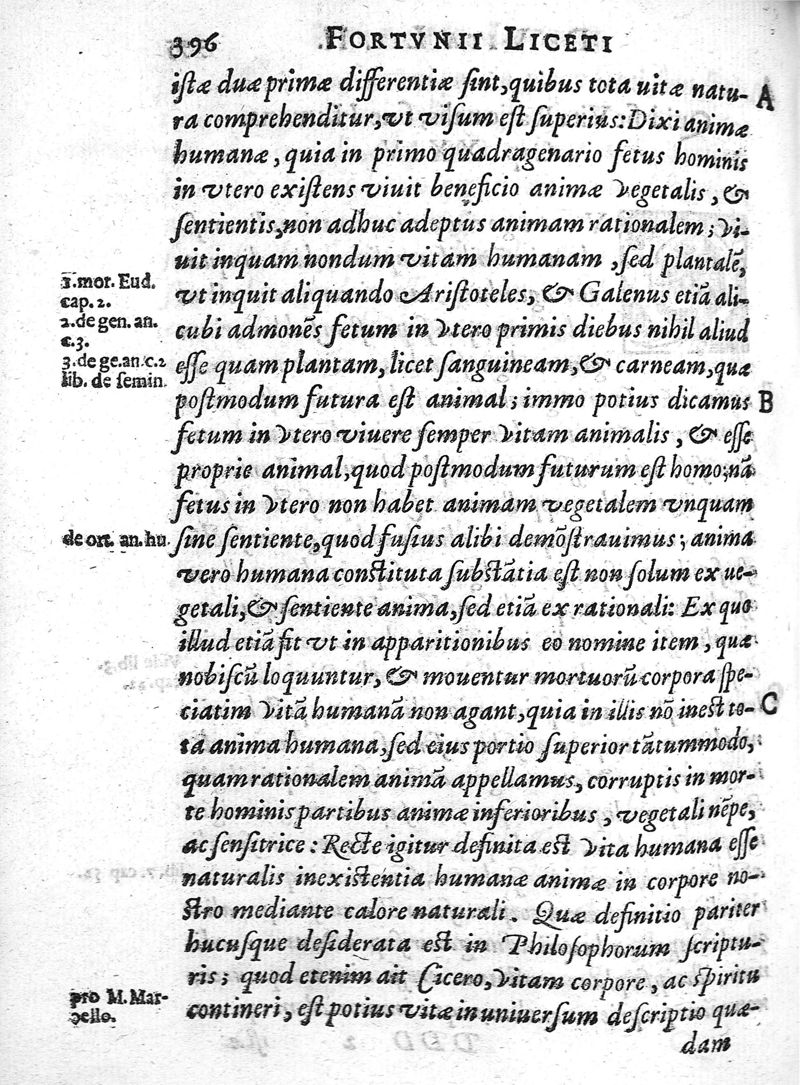 396 FORTVNII LICETI
istæ duæ primæ differentiæ sint, quibus tota uitæ natu- A
ra comprehenditur, vt visum est superius: Dixi animæ
humanæ, quia in primo quadragenario fetus hominis
in vtero existens viuit beneficio animæ vegetalis, &
sentientis, non adhuc adeptus animam rationalem; vi-
uit inquam nondum vitam humanam, sed plantalē,
1. mor. Eud.
cap. 2.
2. de gen. an.
c. 3.
3. de ge. an. c. 2
lib. de semin.
vt inquit aliquando Aristoteles, & Galenus etiā ali-
cubi admonēs fetum in vtero primis diebus nihil aliud
esse quam plantam, licet sanguineam, & carneam, quæ
postmodum futura est animal; immo potius dicamus B
fetum in vtero viuere semper vitam animalis, & esse
proprie animal, quod postmodum futurum est homo; nā
fetus in vtero non habet animam vegetalem vnquam
de ort. an. hu.
sine sentiente, quod fusius alibi demōstrauimus; anima
vero humana constituta substātia est non solum ex ue-
getali, & sentiente anima, sed etiā ex rationali: Ex quo
illud etiā fit vt in apparitionibus eo nomine item, quæ
nobiscū loquuntur, & mouentur mortuorū corpora spe-
ciatim vitā humanā non agant, quia in illis nō inest to- C
ta anima humana, sed eius portio superior tātummodo,
quam rationalem animā appellamus, corruptis in mor-
te hominis partibus animæ inferioribus, vegetali nēpe,
ac sensitrice: Recte igitur definita est vita humana esse
naturalis inexistentia humanæ animæ in corpore no-
stro mediante calore naturali. Quæ definitio pariter
hucusque desiderata est in Philosophorum scriptu-
ris; quod etenim ait Cicero, vitam corpore, ac spiritu
pro M. Mar-
cello.
contineri, est potius vitæ in uniuersum descriptio quæ-
dam